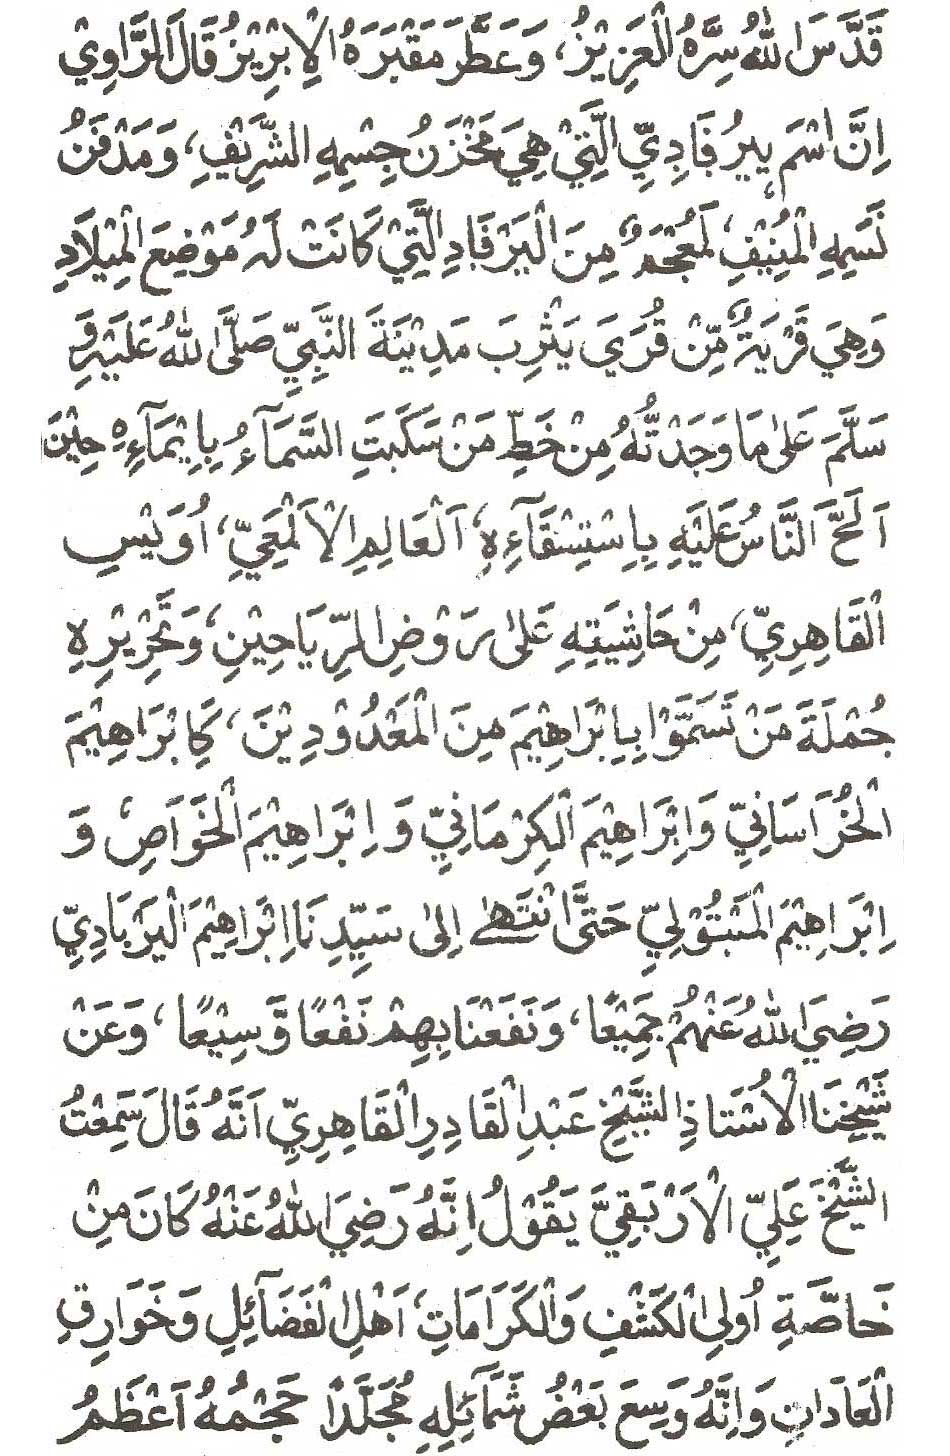 قَدَّسَ اللهُ سِرَّهُ الْعَزِيْزُ، وَعَطَّرَ مَقْبَرَهُ الْاِبْرِيْزُ قَالَ الرَّاوِيْ
اِنَّ اسْمَ يِيرُ فَادِيِّ الَّتِيْ هِيَ مَخْزَنُ جِسْمِهِ الشَّرِيْفِ، وَمَدْفَنُ
نَسَمِهِ الْمُنِيْفِ، لَمُعْجَمَةٌ مِنَ الْيَرْفَادِ الَّتِيْ كَانَتْ لَهُ مَوْضِعَ الْمِيْلَادِ
وَهِيَ قَرْيَةٌ مِّنْ قُرَيَ يَثْرِبَ مَدِيْنَةَ النَّبِيِّ صَلَّى اللهُ عَلَيْهِ وَ
سَلَّمَ عَلٰى مَا وَجَدْتُّهُ مِنْ خَطِّ مَنْ سَكَبَتِ السَّمَآءُ بِاِيْمَآءِهِ حِيْنَ
اَلَحَّ النَّاسُ عَلَيْهِ بِاِسْتِسْقَآءِهِ، اَلْعَالِمِ الْاَلْمَعِيِّ، اُوَيْسٍ
الْقَاهِرِيِّ، مِنْ حَاشِيَتِهِ عَلٰى رَوْضِ الرِّيَاحِيْنِ، وَتَحْرِيْرِهِ
جُمْلَةَ مَنْ تَسَمَّوْا بِاِبْرَاهِيْمَ مِنَ الْمَعْدُوْدِيْنَ، كَاِبْرَاهِيْمَ
الْخُرَاسَانِيِّ وَاِبْرَاهِيْمَ الْكِرْمَانِيِّ وَاِبْرَاهِيْمَ الْخَوَاصِ، وَ
اِبْرَاهِيْمَ الْمَبْتُوْلِيِّ حَتَّى انْتَهٰى اِلٰى سَيِّدِنَا اِبْرَاهِيْمَ الْيَرَبَادِيِّ
رَضِيَ اللهُ عَنْهُمْ جَمِيْعًا، وَنَفَعْنَا بِهِمْ نَفْعًا وَّسِيْعًا، وَعَنْ
شَيْخِنَا الْاُسْتَاذِ الشَّيْخِ عَبْدِ الْقَادِرِ الْقَاهِرِيِّ اَنَّهُ قَالَ سَمِعْتُ
الشَّيْخَ عَلِيِّ الْاَرْبَقِيَّ يَقُوْلُ اِنَّهُ رَضِيَ اللهُ عَنْهُ كَانَ مِنْ
خَاصَّةِ اُولِى الْكَشْفِ وَالْكَرَامَاتِ، اَهْلِ الْفَضَآئِلِ وَخَوَارِقِ
الْعَادَاتِ وَاِنَّهُ وَسِعَ بَعْضُ شَمَآئِلِهِ مُجَلَّدًا حَجْمُهُ اَعْظَمُ